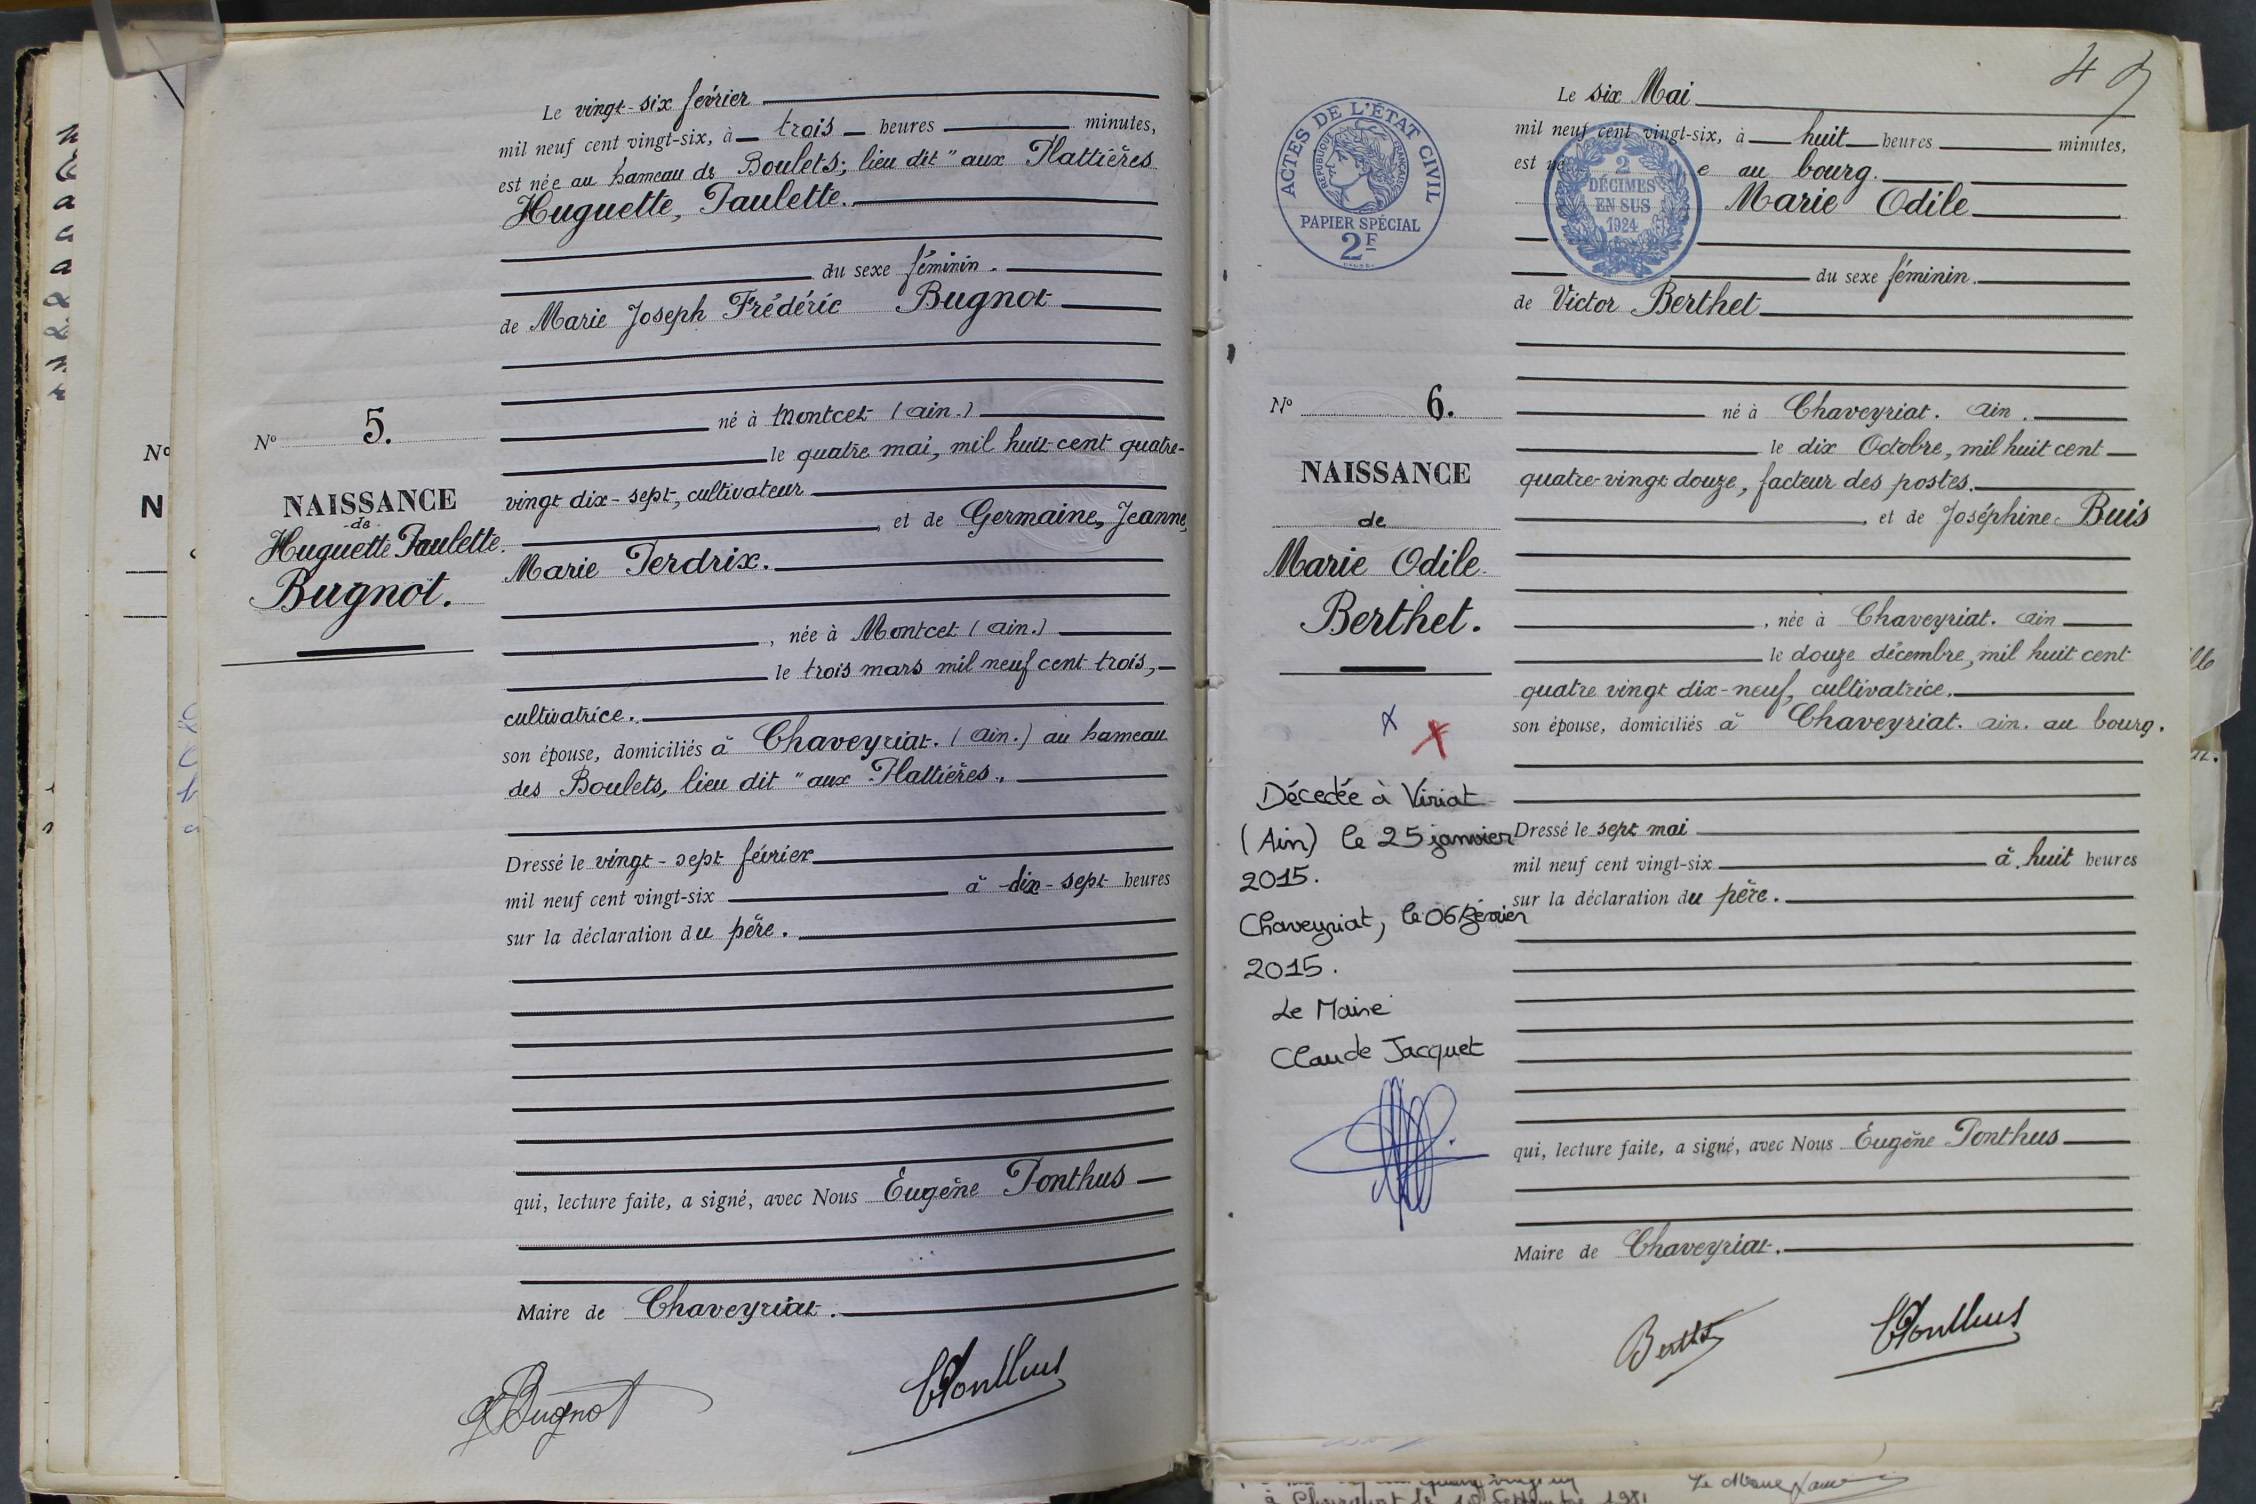 Le vingt-six février
mil neuf cent vingt-six, à trois heures minutes,
est née au hameau de Boulets; lieu dit "aux Plattières
Huguette, Paulette.
du sexe féminin.
de Marie Joseph Frédéric Bugnot
né à Montcet (ain.)
le quatre mai, mil huit cent quatre-
vingt dix-sept, cultivateur
, et de Germaine, Jeanne,
Marie Perdrix.
, née à Montcet (ain.)
le trois mars mil neuf cent trois,
cultivatrice.
son épouse, domiciliés à Chaveyriat. (ain.) au hameau
des Boulets, lieu dit "aux Plattières.
Dressé le vingt-sept février
mil neuf cent vingt-six à dix-sept heures
sur la déclaration du père.
qui, lecture faite, a signé, avec Nous Eugène Ponthus
Maire de Chaveyriat.
Bugnot
Ponthus
No 5.
NAISSANCE
de
Huguette Paulette.
Bugnot.
No
N
4
Le six Mai
mil neuf cent vingt-six, à huit heures minutes,
est né e au bourg.
Marie Odile
du sexe féminin.
de Victor Berthet
né à Chaveyriat. ain.
le dix Octobre, mil huit cent
quatre-vingt douze, facteur des postes.
, et de Joséphine Buis
, née à Chaveyriat. ain
le douze décembre, mil huit cent
quatre vingt dix-neuf, cultivatrice.
son épouse, domiciliés à Chaveyriat. ain. au bourg.
Dressé le sept mai
mil neuf cent vingt-six à huit heures
sur la déclaration du père.
qui, lecture faite, a signé, avec Nous Eugène Ponthus
Maire de Chaveyriat.
Berthet
Ponthus
ACTES DE L'ÉTAT CIVIL
RÉPUBLIQUE FRANÇAISE
PAPIER SPÉCIAL
2F
2
DÉCIMES
EN SUS
1924
No 6.
NAISSANCE
de
Marie Odile
Berthet.
Décedée à Viriat
(Ain) le 25 janvier
2015.
Chaveyriat, le 06 février
2015.
Le Maire
Claude Jacquet